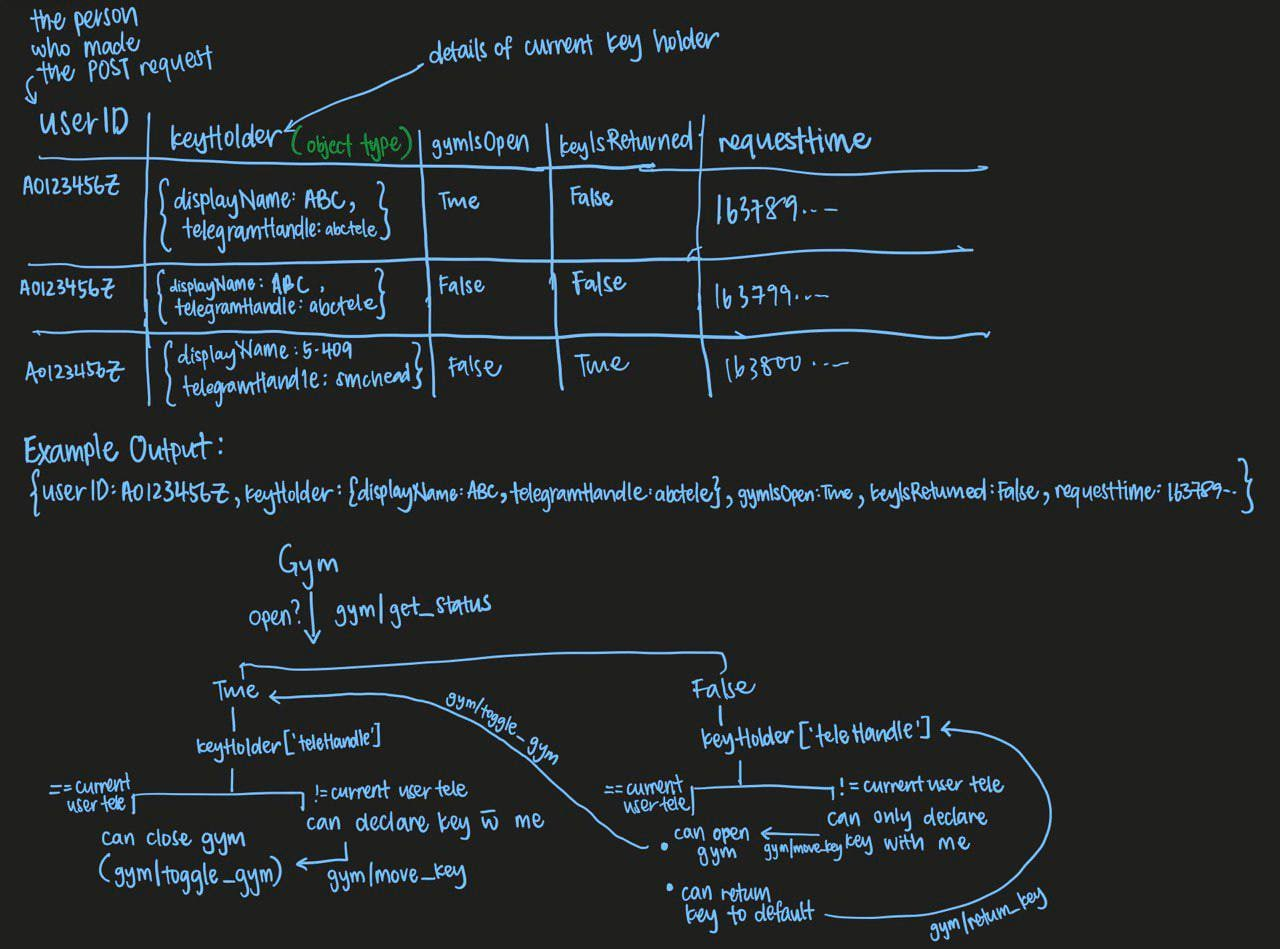 the person
who made
the POST request
details of current key holder
userID
keyHolder (object type)
gymIsOpen
keyIsReturned
requesttime
A0123456Z
{displayName: ABC,
telegramHandle: abctele}
True
False
163789...--
A0123456Z
{displayName: ABC,
telegramHandle: abctele}
False
False
163799...--
A0123456Z
{displayName: 5-409
telegramHandle: smchead}
False
True
163800...--
Example Output:
{userID: A0123456Z, keyHolder: {displayName: ABC, telegramHandle: abctele}, gymIsOpen: True, keyIsReturned: False, requesttime: 163789--..}
Gym
open?
gym/get_status
True
False
gym/toggle_gym
keyHolder['teleHandle']
keyHolder['teleHandle']
== current
user tele
!= current user tele
can close gym
(gym/toggle_gym)
can declare key w̅ me
gym/move_key
== current
user tele
!= current user tele
• can open
gym
can only declare
key with me
gym/move_key
• can return
key to default
gym/return_key